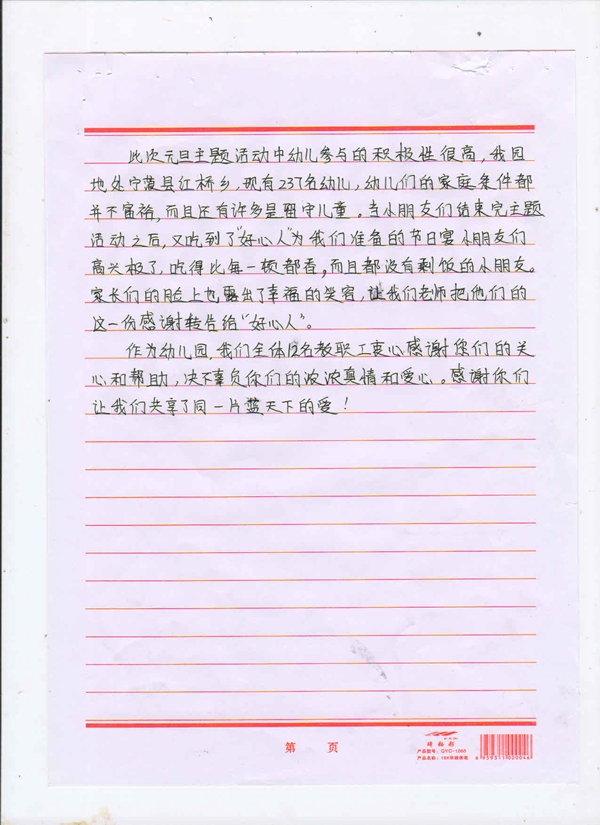 此次元旦主题活动中幼儿参与的积极性很高，我园
地处宁蒗县红桥乡，现有237名幼儿，幼儿们的家庭条件都
并不富裕，而且还有许多是留守儿童。当小朋友们结束完主题
活动之后，又吃到了“好心人”为我们准备的节日宴小朋友们
高兴极了，吃得比每一顿都香，而且都没有剩饭的小朋友。
家长们的脸上也露出了幸福的笑容，让我们老师把他们的
这一份感谢转告给“好心人”。
作为幼儿园，我们全体12名教职工衷心感谢你们的关
心和帮助，决不辜负你们的浓浓真情和爱心。感谢你们
让我们共享了同一片蓝天下的爱！
第 页
产品型号：GYD-1660
产品名称：16K